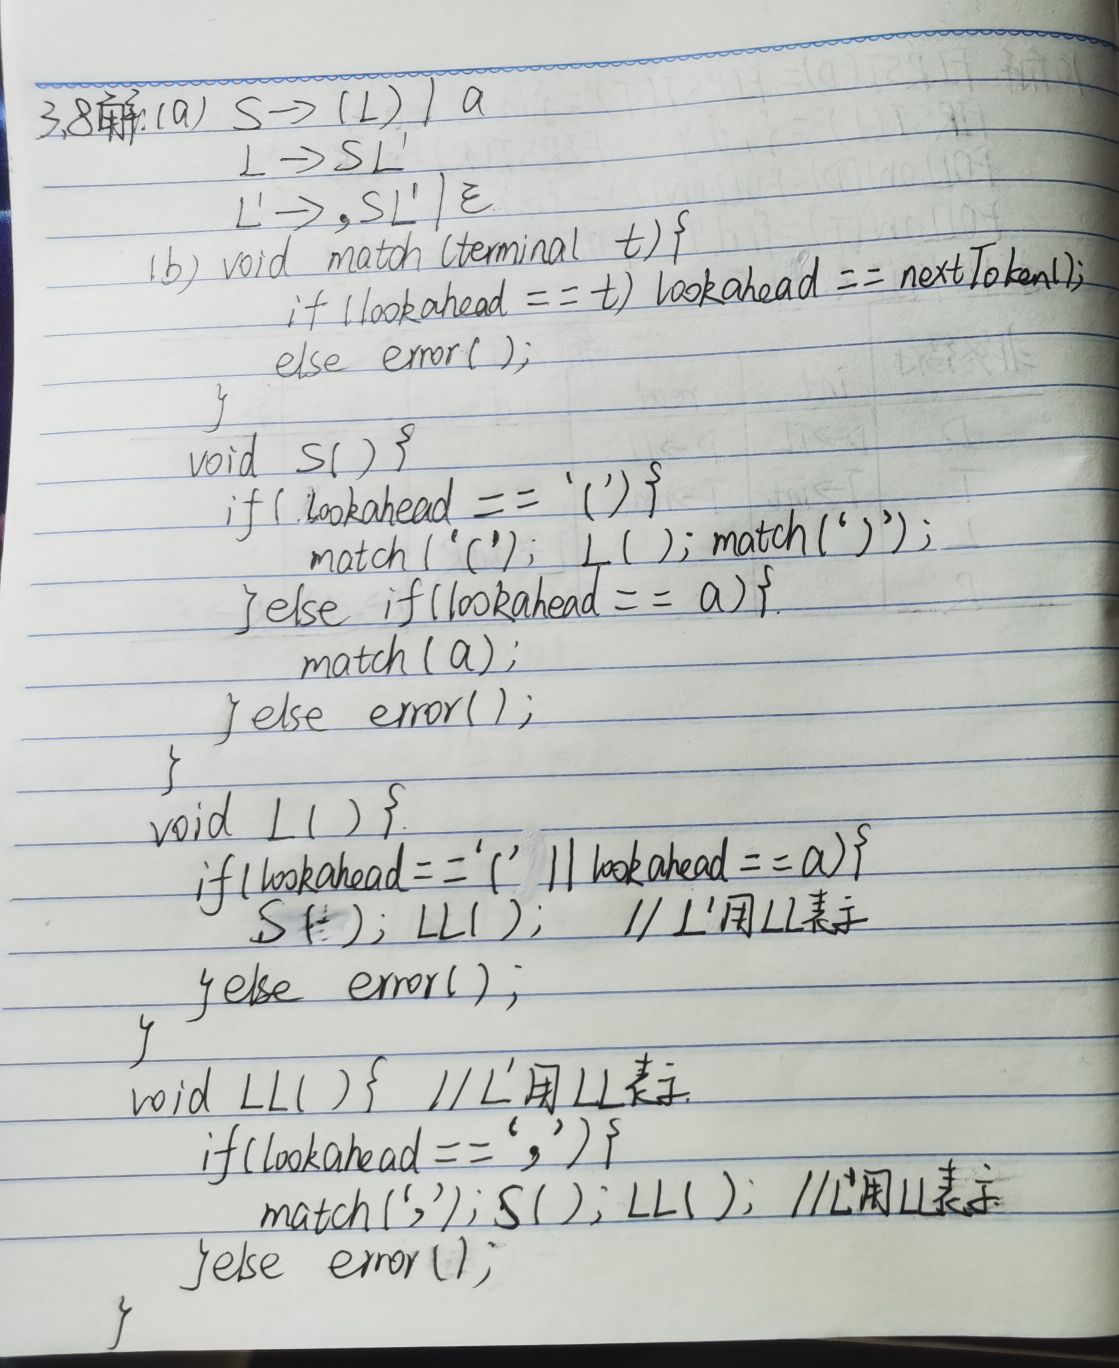 3.8解:(a) S→(L) | a
L→SL'
L'→,SL' | ε
(b) void match (terminal t){
if (lookahead == t) lookahead == nextToken();
else error();
}
void S(){
if( lookahead == '('){
match('('); L(); match(')');
}else if(lookahead == a){
match(a);
}else error();
}
void L(){
if(lookahead=='(' || lookahead==a){
S(); LL(); // L'用LL表示
}else error();
}
void LL(){ //L'用LL表示
if(lookahead==','){
match(','); S(); LL(); //L'用LL表示
}else error();
}